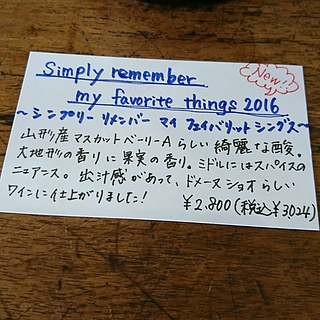 Simply remember
New!
my favorite things 2016
～シンプリー リメンバー マイ フェイバリット シングス～
山形産マスカットベーリーAらしい綺麗な酸。
大地形の香りに果実の香り。ミドルにはスパイスの
ニュアンス。出汁感があって、ドメーヌショオらしい
ワインに仕上がりました!
¥2.800(税込¥3024)